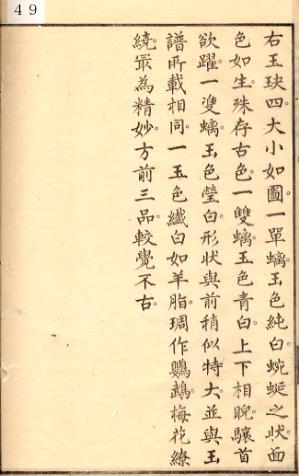 49
右玉玦四大小如圖一單螭玉色純白蜿蜒之狀面
色如生殊存古色一雙螭玉色青白上下相睨驤首
欲躍一雙螭玉色瑩白形狀與前稍似特大並與玉
譜所載相同一玉色纖白如羊脂琱作鸚鵡梅花繚
繞最為精妙方前三品較覺不古